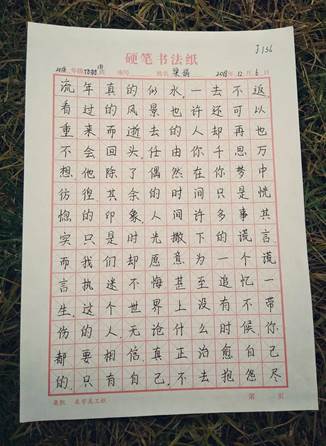 J156
硬笔书法纸
年级 编号 姓名 2018年12月6日
流年真的似水,一去不返
看过的风景也许还可以
重来而逝去的人却再也
不会回头,任由你千思万
想,他除了偶然在你梦中
彷徨其余的时间只是恍
惚的印象,人间许多事其
实只是时光撒下的谎言
而我们却愿意为一个谎
言执迷不悔甚至追忆一
生,这个世界上没有不带
伤的人,无论什么时候,你
都要相信,真正治愈自己
的,只有自己,不去抱怨尽
第 页